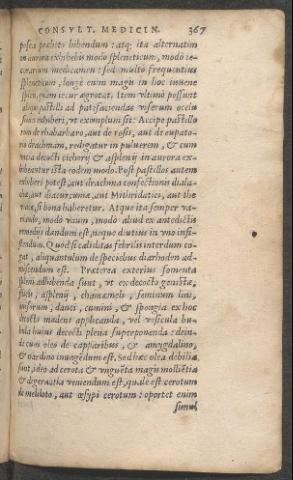 CONSVLT. MEDICIN. 367
posca probito bibendum : atq; ita alternatim
in aurora exhibebis modo spleneticum, modo ie-
corarium medicamen : sed multo frequentius
spleneticum, longè enim magis in hoc iuuene
splen, quàm iecur ægrotat. Item vltimò possunt
aliqui pastilli ad patefaciendas viserum occlu
siones exhiberi, vt exempli sit: Accipe pastillo
rum de rhabarbaro, aut de rosis, aut de eupato-
rio drachmam, redigatur in puluerem, & cum
vncia decocti cichorij & asplenij in aurora ex-
hibeantur ista eodem modo. Post pastillos autem
exhiberi potest, aut drachma confectionis diala-
cca, aut diacurcuma, aut Mithridatici, aut the
riacæ, si bona haberetur. Atque ita semper va-
riando, modo vnum, modo aliud ex antedictis
remedijs dandum est, neque diutius in vno insi-
stendum. Quod si caliditas febrilis interdum co-
gat, aliquantulum de speciebus diarhodon ad-
miscendum est. Præterea exterius fomenta
spleni adhibenda sunt, vt ex decocto genistæ,
, asplenij, chamæmeli, seminum lini,
anisorum, dauci, cumini, & spongia ex hoc
decocto madens applicanda, vel vesicula bu-
bula huius decocti plena superponenda : dein-
de cum oleo de capparibus, & amygdalino,
& nardino inungendum est. Sed hæc olea debilia
sunt, ideo ad cerota & vnguēta magis mollientia
& digerentia veniendum est, quale est cerotum
de meliloto, aut œsypi cerotum : oportet enim
simul